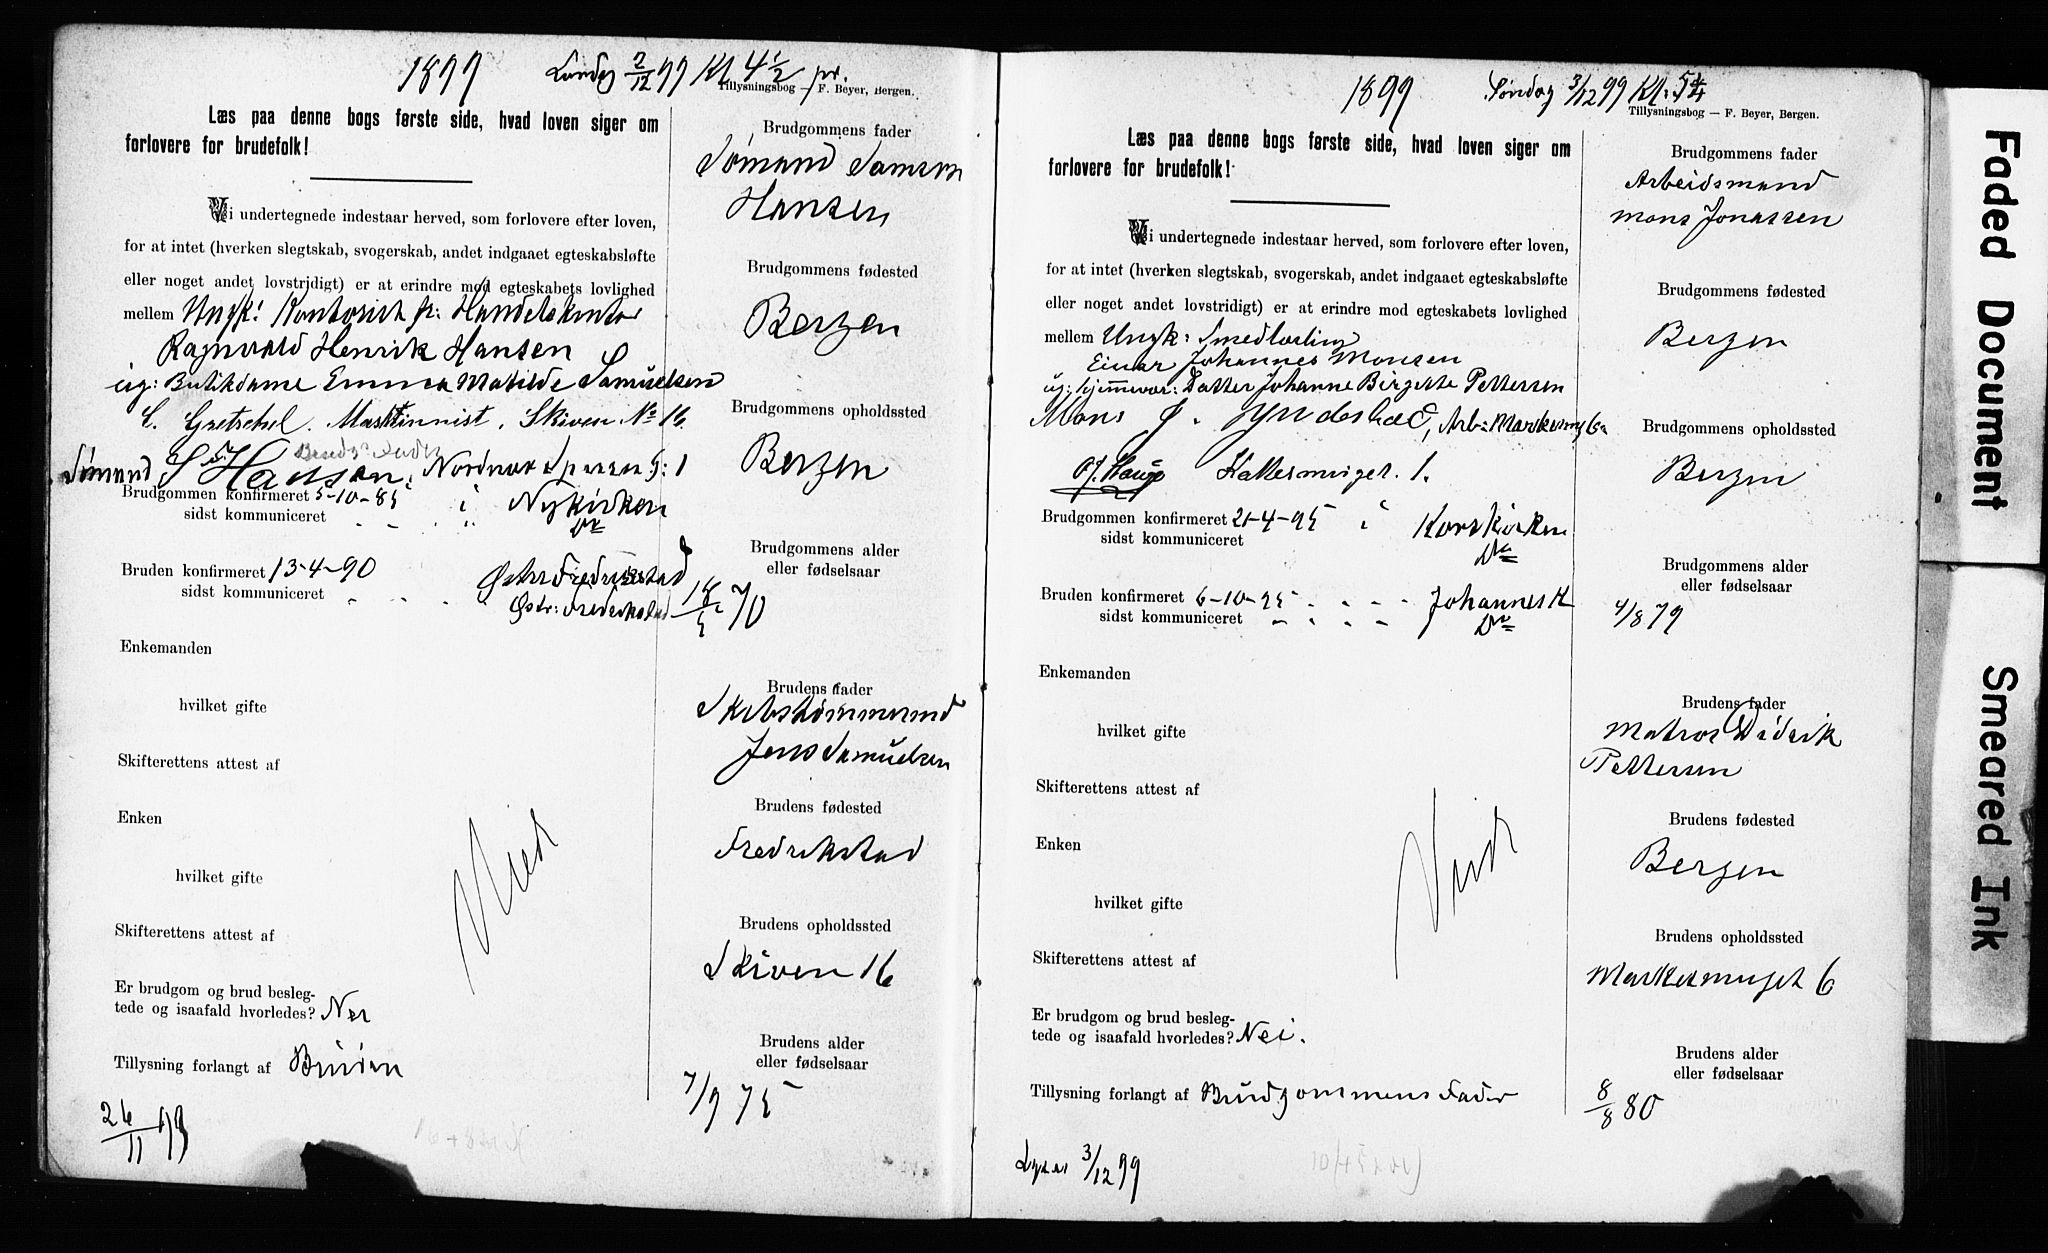 1899 Lørdag 2/12 99 Kl 4 1/2 pr.
Tillysningsbog — F. Beyer, Bergen.
Læs paa denne bogs første side, hvad loven siger om
forlovere for brudefolk!
Vi undertegnede indestaar herved, som forlovere efter loven,
for at intet (hverken slegtskab, svogerskab, andet indgaaet egteskabsløfte
eller noget andet lovstridigt) er at erindre mod egteskabets lovlighed
mellem Ungk: Kontorist pr: Handelskontor
Ragnvald Henrik Hansen
ug: Butikdame Emma Matilde Samuelsen
C. Gretschel. Maskinnist. Skiven No 16.
Sømand S F Hansen, Nordnæs 5: 1
Brudgommen konfirmeret 5-10-85 i Nykirken
sidst kommuniceret Do
Bruden konfirmeret 13-4-90 Østre Fredrikstad
sidst kommuniceret Østr: Fredrikstad
Enkemanden
hvilket gifte
Skifterettens attest af
Enken
hvilket gifte
Skifterettens attest af
Viet
Er brudgom og brud besleg-
tede og isaafald hvorledes? Nei
Tillysning forlangt af Bruden
26/11 99
Brudgommens fader
Sømand Samson
Hansen
Brudgommens fødested
Bergen
Brudgommens opholdssted
Bergen
Brudgommens alder
eller fødselsaar
18/5 70
Brudens fader
Skibstømmermd
Jens Samuelsen
Brudens fødested
Fredrikstad
Brudens opholdssted
Skiven 16
Brudens alder
eller fødselsaar
7/9 75
1899 Søndag 3/12 99 Kl. 5 1/4
Tillysningsbog — F. Beyer, Bergen.
Læs paa denne bogs første side, hvad loven siger om
forlovere for brudefolk!
Vi undertegnede indestaar herved, som forlovere efter loven,
for at intet (hverken slegtskab, svogerskab, andet indgaaet egteskabsløfte
eller noget andet lovstridigt) er at erindre mod egteskabets lovlighed
mellem Ungk: Smedlærling
Einar Johannes Monsen
ug: hjemmev: Datter Johanne Birgitte Pettersen
Mons J. Arb: Markesmug 6
Kattesmuget. 1.
Brudgommen konfirmeret 21-4-95 i Korskirken
sidst kommuniceret Do
Bruden konfirmeret 6-10-95 Johannesk
sidst kommuniceret Do
Enkemanden
hvilket gifte
Skifterettens attest af
Enken
hvilket gifte
Skifterettens attest af
Viet
Er brudgom og brud besleg-
tede og isaafald hvorledes? Nei.
Tillysning forlangt af Brudgommens Fader
Lyses 3/12 99
Brudgommens fader
Arbeidsmand
Mons Jonassen
Brudgommens fødested
Bergen
Brudgommens opholdssted
Bergen
Brudgommens alder
eller fødselsaar
4/8 79
Brudens fader
Matros Didrik
Pettersen
Brudens fødested
Bergen
Brudens opholdssted
Markesmuget 6
Brudens alder
eller fødselsaar
8/8 80
Faded Document
Smeared Ink